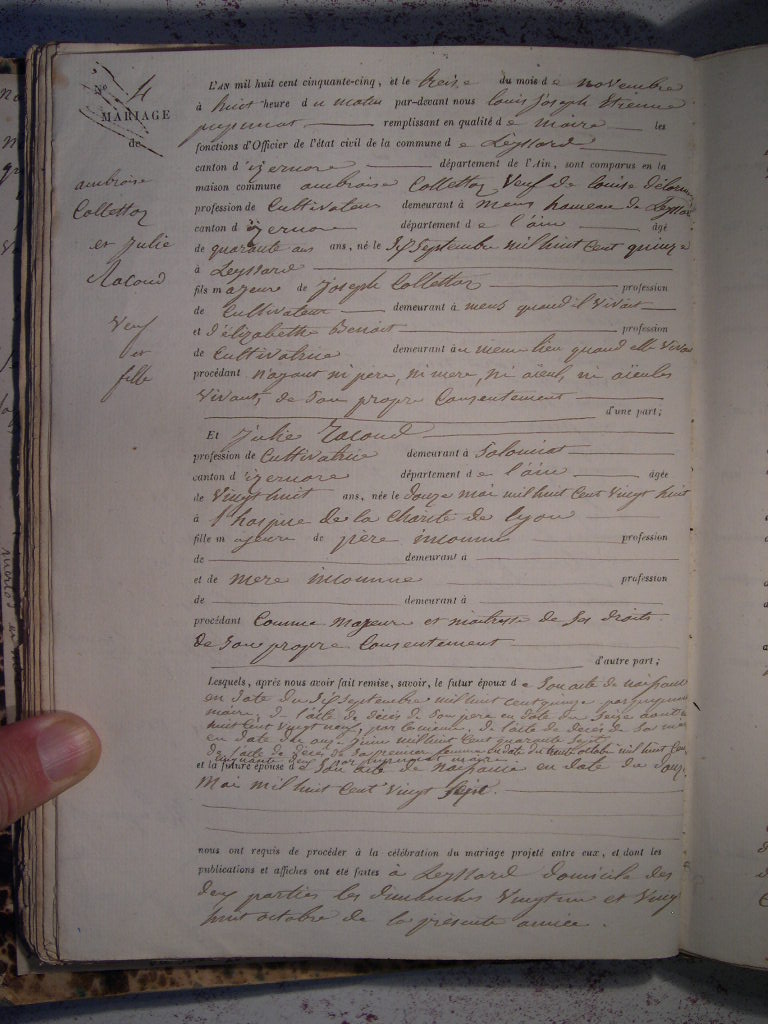 No 4
MARIAGE
de
ambroise
Collettaz
et Julie
Racoud
Veuf
et
fille
L'AN mil huit cent cinquante-cinq, et le treize du mois de novembre
à huit heure du matin par-devant nous louis joseph Etienne
remplissant en qualité de maire les
fonctions d'Officier de l'état civil de la commune de Leyssard
canton d'izernore département de l'Ain, sont comparus en la
maison commune ambroise Collettaz Veuf de louise
profession de Cultivateur demeurant à mens hameau de Leyssard
canton d'izernore département de l'ain âgé
de quarante ans ans, né le 14 Septembre mil huit Cent quinze
à Leyssard
fils majeure de joseph Collettaz profession
de Cultivateur demeurant à mens quand il Vivait
et d'élizabethe Benoit profession
de Cultivatrice demeurant au meme lieu quand elle Vivait
procédant n'ayant ni pere, ni mere, ni aïeul, ni aïeules
Vivant, de Son propre Consentement
d'une part;
Et Julie Racoud
profession de Cultivatrice demeurant à Solomiat
canton d'izernore département de l'ain âgée
de Vingt huit ans, née le douze mai mil huit Cent Vingt huit
à l'hospice de la Charité de lyon
fille majeure de père inconnu profession
de demeurant à
et de mere inconnue profession
de demeurant à
procédant Comme majeure et maitresse de Ses droits
de Son propre Consentement
d'autre part;
Lesquels, après nous avoir fait remise, savoir, le futur époux de Son acte de naissance
en date du 14 Septembre mil huit cent quinze par
maire, de l'acte de décès de Son pere en date du Seize aout
huit Cent Vingt neuf, de l'acte de décès de Sa mere
en date du onze juin mil huit Cent quarante
de l'acte de décès de Sa premiere femme en date du trente octobre mil huit Cent
cinquante deux par maire
et la future épouse de Son acte de naissance en date du douze
Mai mil huit Cent Vingt Sept.
nous ont requis de procéder à la célébration du mariage projeté entre eux, et dont les
publications et affiches ont été faites à Leyssard domicile des
deux parties les dimanches Vingt un et Vingt
huit octobre de la présente année.